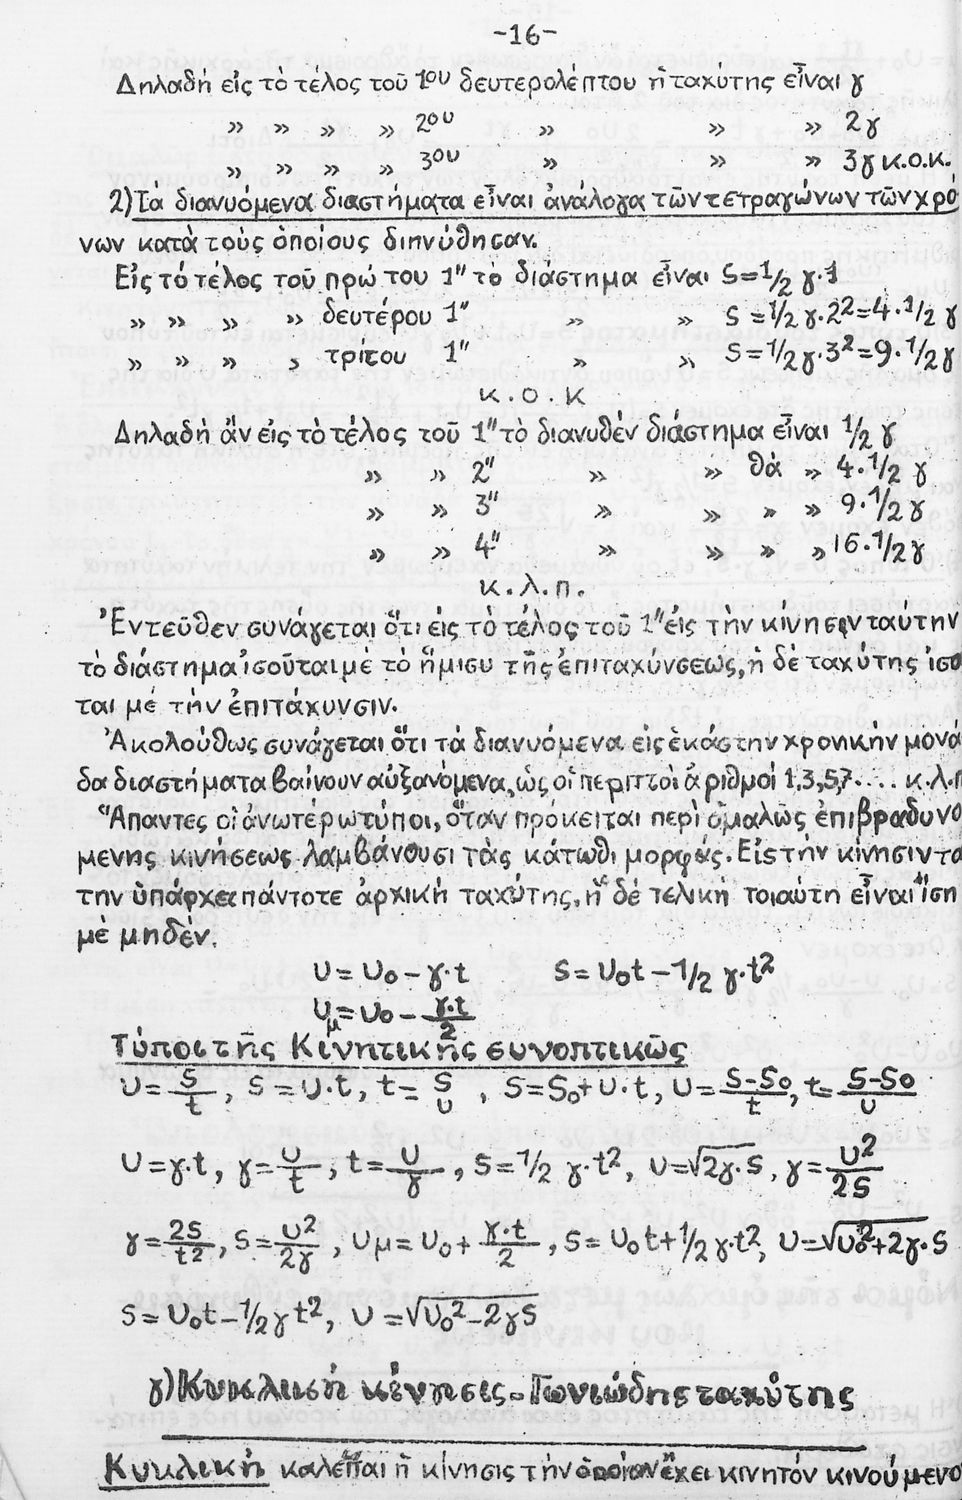 -16-
Δηλαδή εἰς τὸ τέλος τοῦ 1ου δευτερολέπτου ἡ ταχύτης εἶναι γ
» » » » 2ου » » » 2γ
» » » » 3ου » » » 3γ κ.ο.κ.
2) Τὰ διανυόμενα διαστήματα εἶναι ἀνάλογα τῶν τετραγώνων τῶν χρό
νων κατὰ τοὺς ὁποίους διηνύθησαν.
Εἰς τό τέλος τοῦ πρώτου 1" τὸ διάστημα εἶναι S=1/2 γ·1
» » » » δευτέρου 1" » » S=1/2 γ·2²=4·1/2 γ
» » » » τρίτου 1" » » S=1/2γ·3²=9·1/2γ
κ.ο.κ
Δηλαδὴ ἄν εἰς τὸ τέλος τοῦ 1" τὸ διανυθέν διάστημα εἶναι 1/2 γ
» » 2" » » θά » 4·1/2 γ
» » 3" » » » » 9·1/2γ
» » 4" » » » » 16·1/2γ
κ.λ.π.
Ἐντεῦθεν συνάγεται ὅτι εἰς τὸ τέλος τοῦ 1" εἰς τὴν κίνησιν ταύτην
τὸ διάστημα ἰσοῦται μέ τὸ ἥμισυ τῆς ἐπιταχύνσεως, ἡ δέ ταχύτης ἰσο
ται μέ τὴν ἐπιτάχυνσιν.
Ἀκολούθως συνάγεται ὅτι τά διανυόμενα εἰς ἑκάστην χρονικήν μονά
δα διαστήματα βαίνουν αὐξανόμενα, ὡς οἱ περιττοί ἀριθμοί 1,3,5,7.... κ.λ.π
Ἅπαντες οἱ ἀνωτέρω τύποι, ὅταν πρόκειται περὶ ὁμαλῶς ἐπιβραδυνο
μένης κινήσεως λαμβάνουσι τὰς κάτωθι μορφάς. Εἰς τήν κίνησιν τα
την ὑπάρχει πάντοτε ἀρχική ταχύτης, ἡ δέ τελική τοιαύτη εἶναι ἴση
μὲ μηδέν.
υ=υ₀-γ·t S=υ₀t-1/2 γ·t²
υμ=υ₀-γ·t/2
Τύποι τῆς Κινητικῆς συνοπτικῶς
υ=S/t, S=υ·t, t=S/υ, S=S₀+υ·t, υ=S-S₀/t, t=S-S₀/υ
υ=γ·t, γ=υ/t, t=υ/γ, S=1/2 γ·t², υ=√2γ·S, γ=υ²/2S
γ=2S/t², S=υ²/2γ, υμ=υ₀+γ·t/2, S=υ₀t+1/2γ·t², υ=√υ₀²+2γ·S
S=υ₀t-1/2γt², υ=√υ₀²-2γS
γ) Κυκλική κίνησις - Γωνιώδης ταχύτης
Κυκλική καλεῖται ἡ κίνησις τήν ὁποίαν ἔχει κινητόν κινούμενο